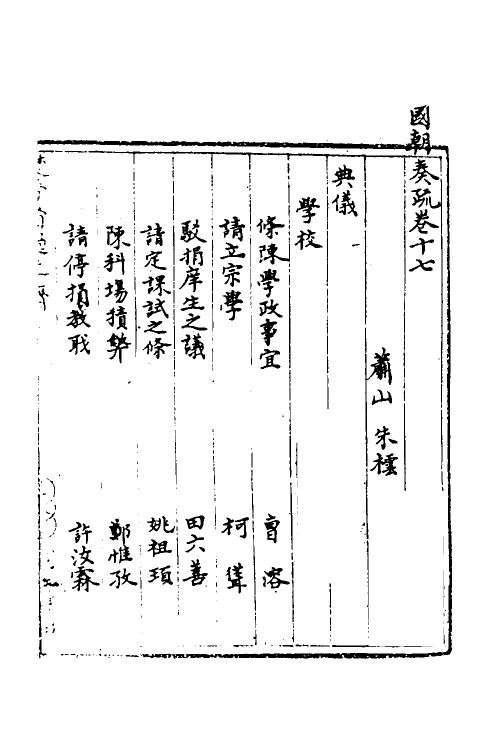 國朝奏疏卷十七
蕭山 朱橒
典儀
學校
條陳學政事宜 曹溶
請立宗學 柯聳
駁捐庠生之議 田六善
請定課試之條 姚祖頊
陳科場積弊 鄭惟孜
請停捐教職 許汝霖